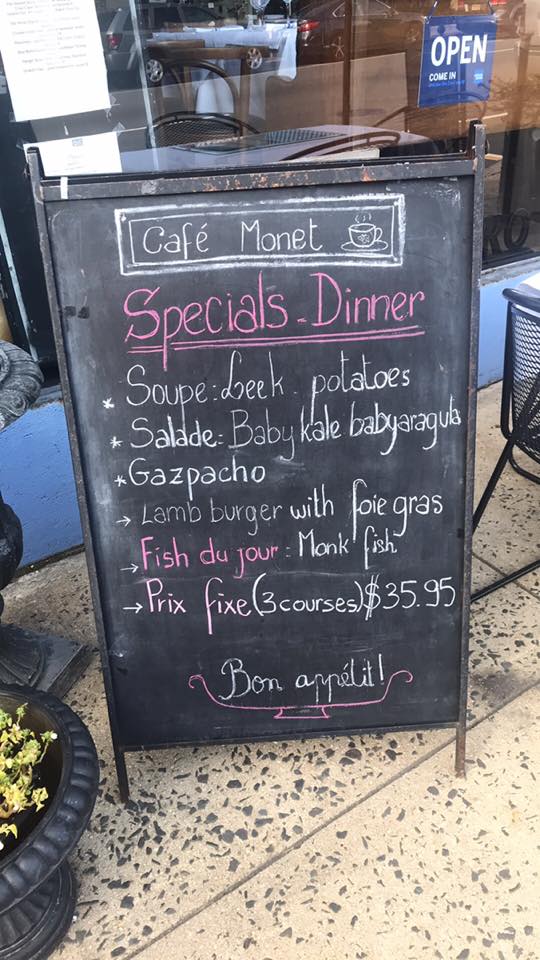 OPEN
COME IN
Café Monet
Specials - Dinner
* Soupe: Leek - potatoes
* Salade: Baby kale baby arugula
* Gazpacho
→ Lamb burger with foie gras
→ Fish du jour: Monk fish
→ Prix fixe (3 courses) $35.95
Bon appétit!